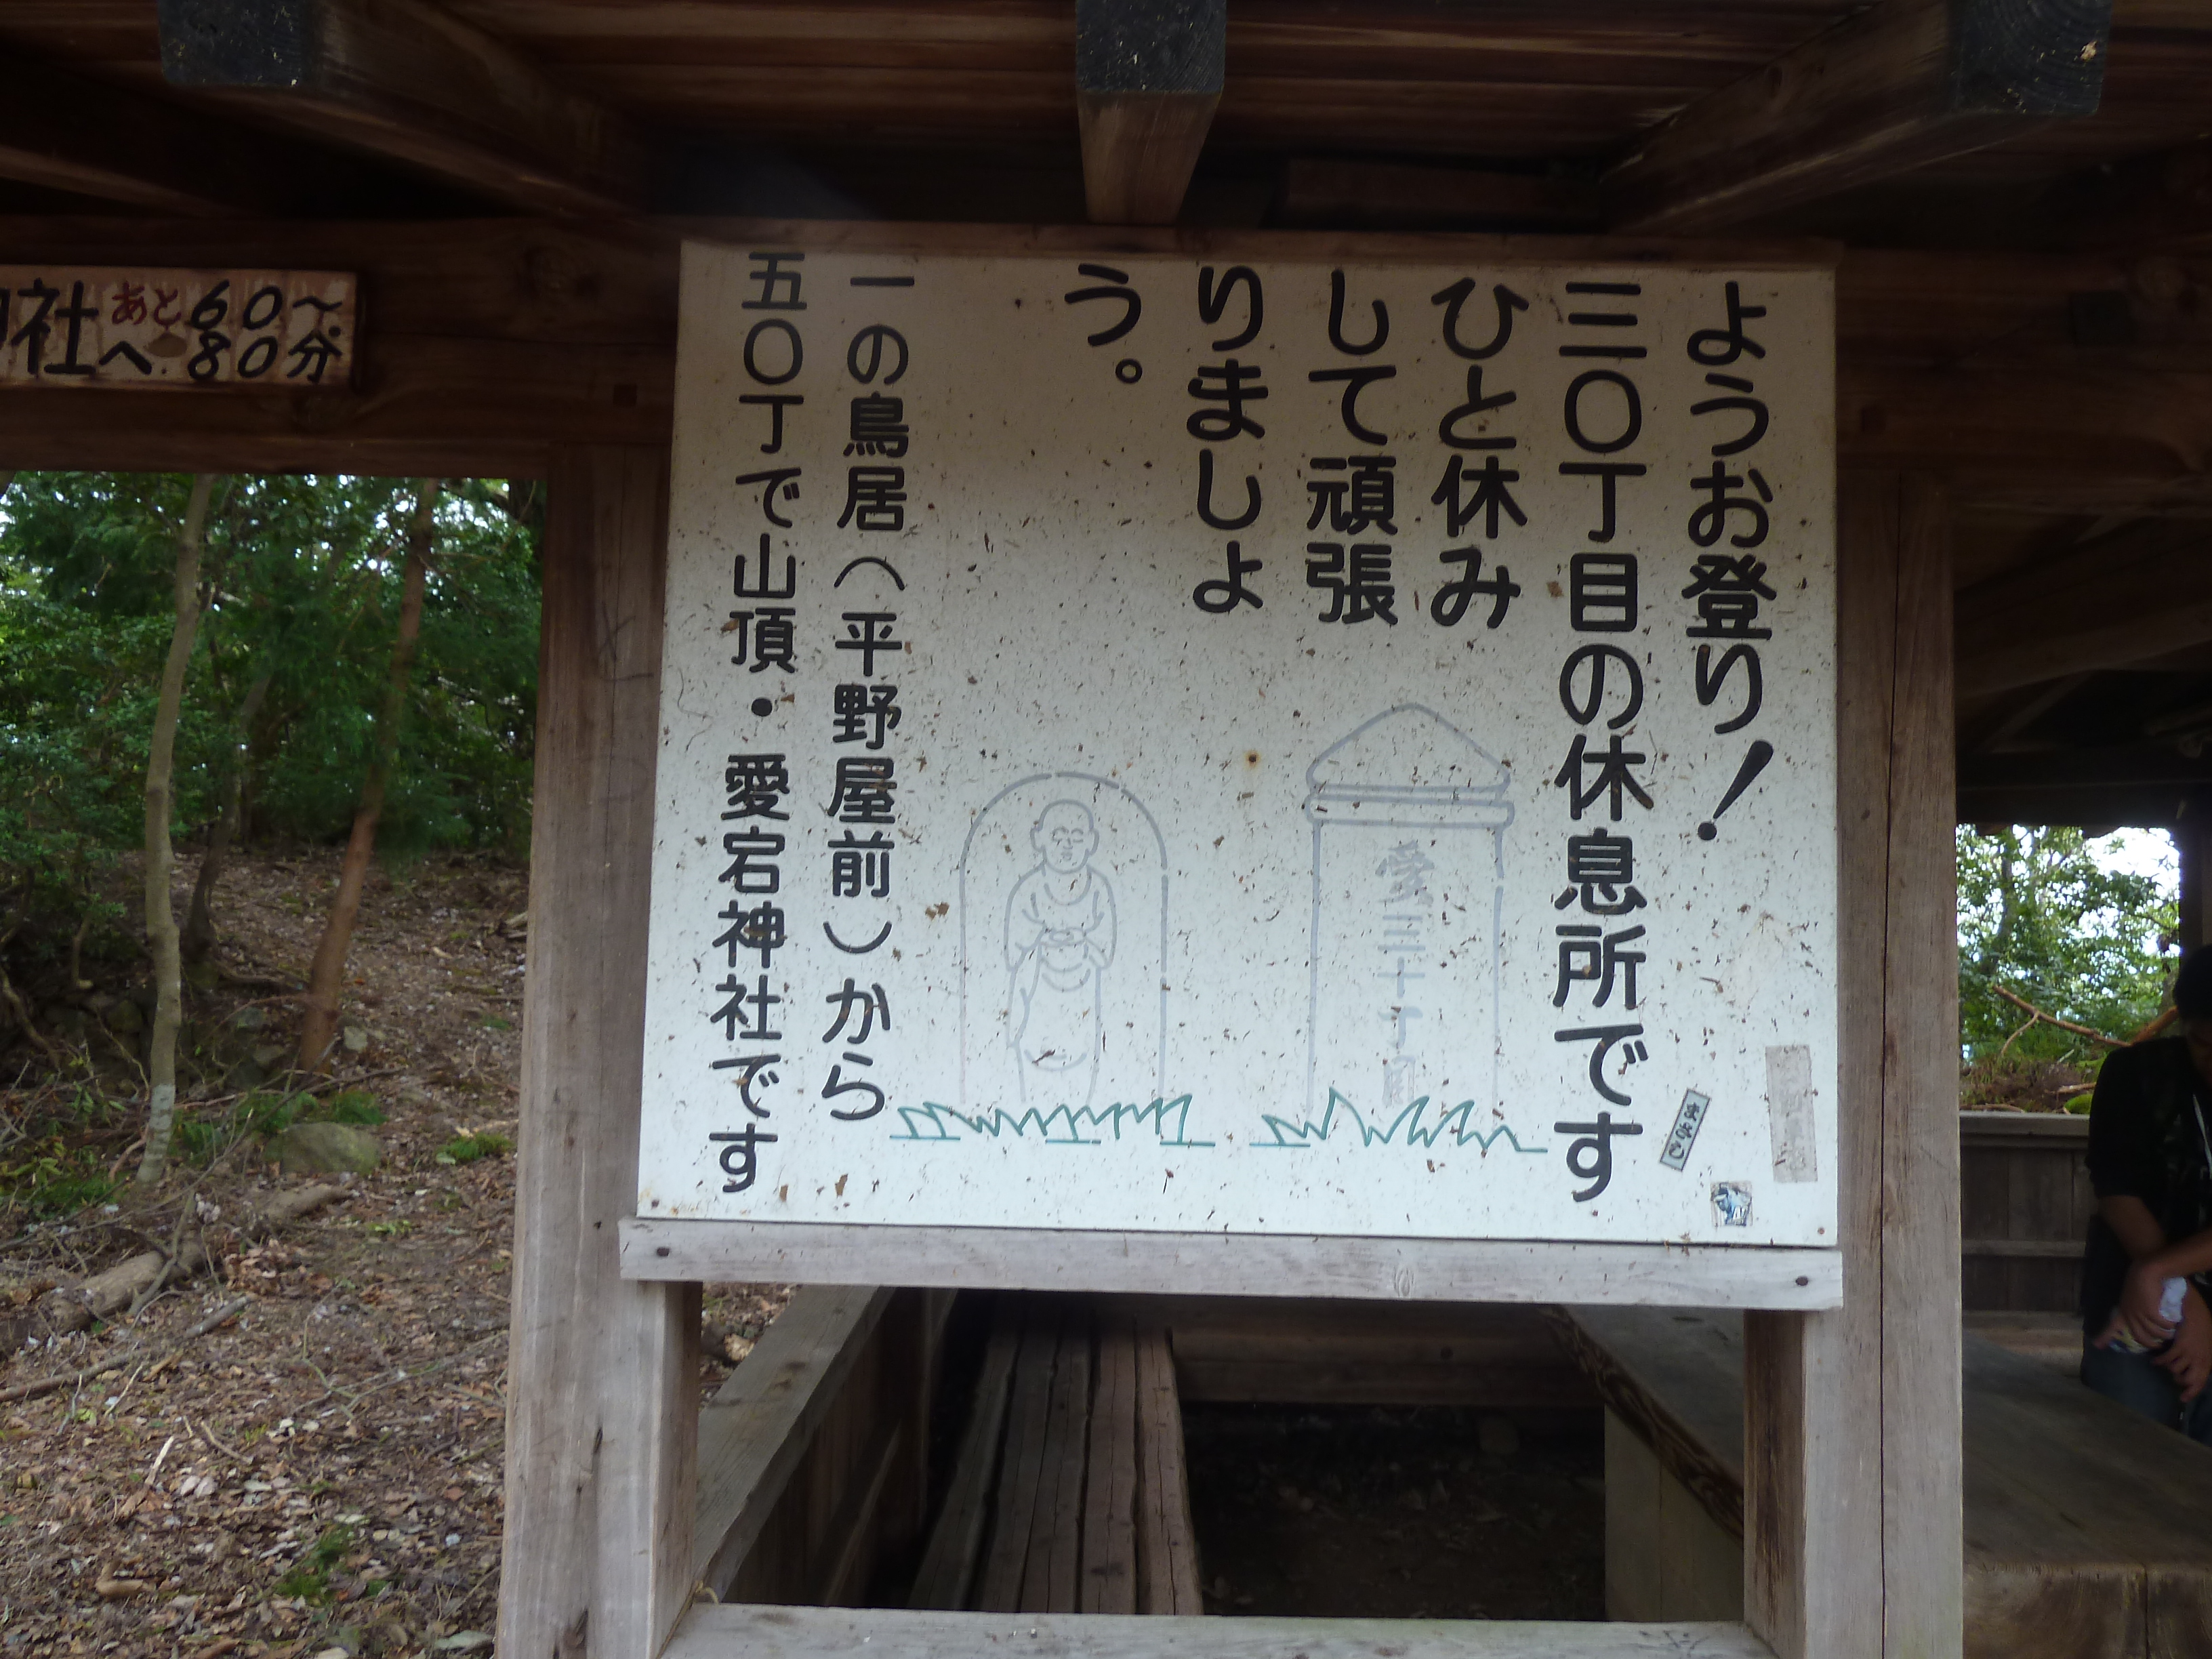 ようお登り!
三〇丁目の休息所です
ひと休み
して頑張
りましょ
う。
一の鳥居(平野屋前)から
五〇丁で山頂・愛宕神社です
愛三十丁目
社へ
あと60〜80分